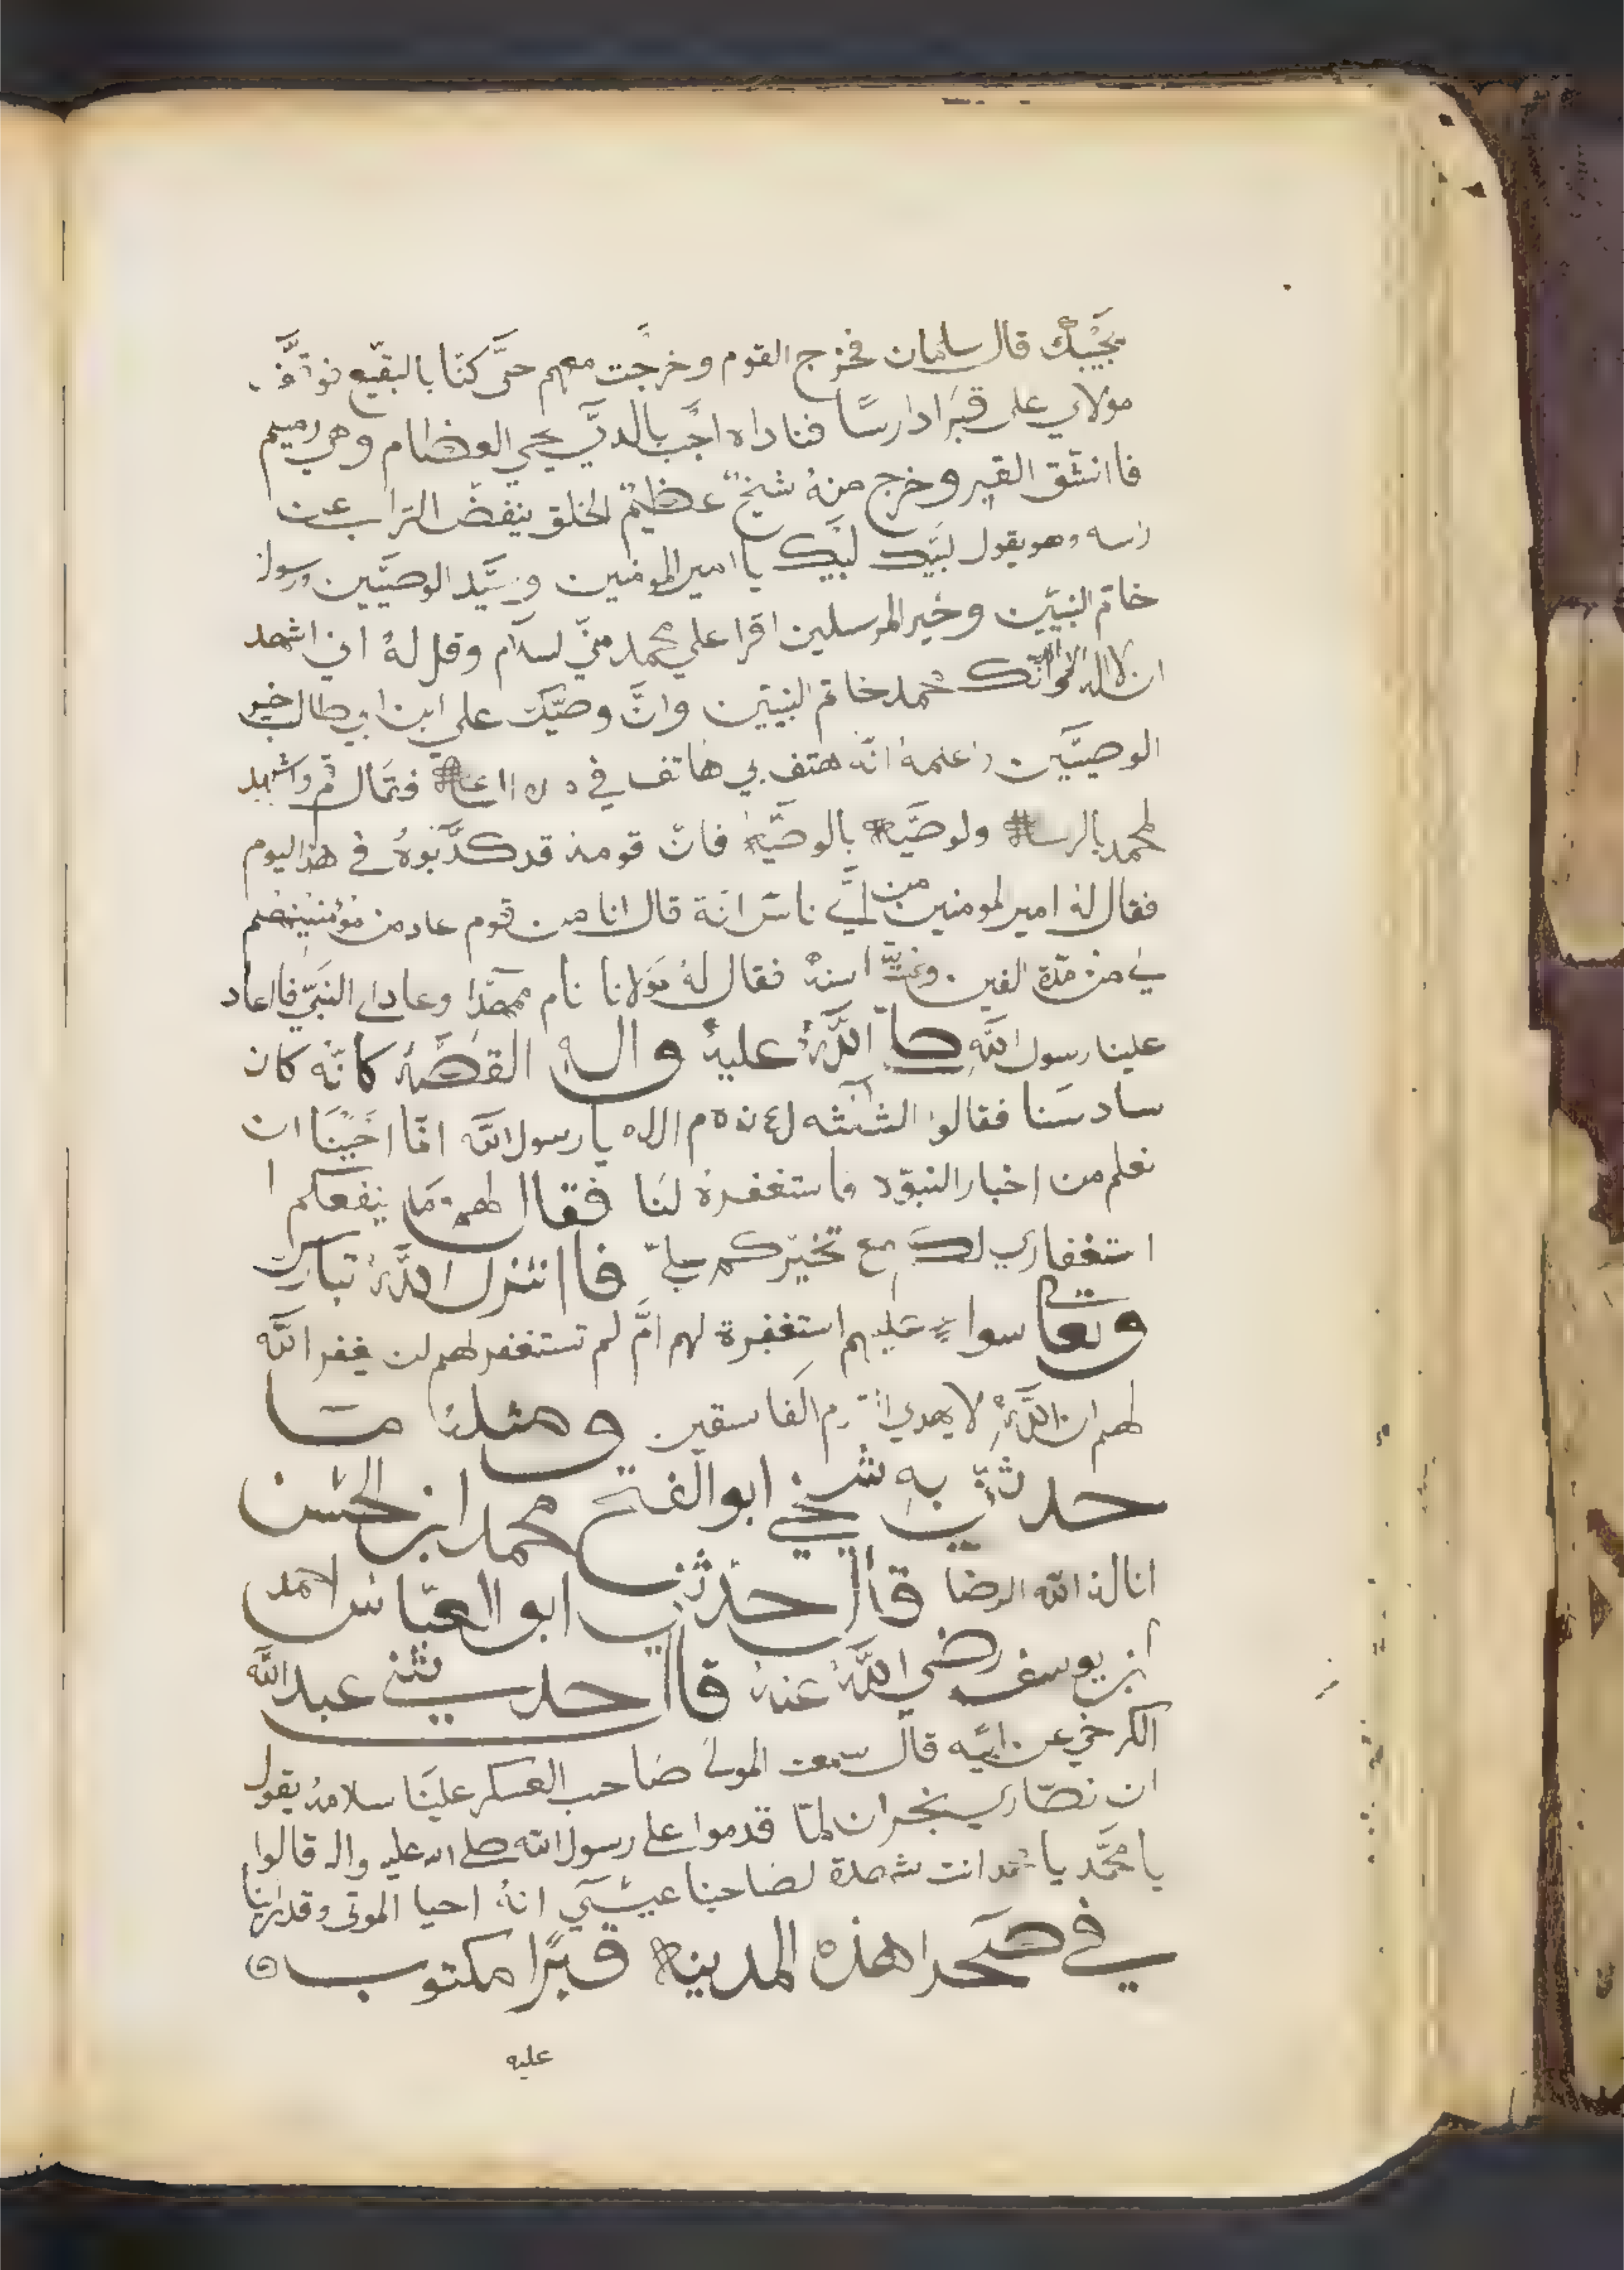 يجيبك قال سلمان فخرج القوم وخرجت معهم حتى كنّا بالبقيع فوقف
مولاي على قبر دارسًا فناداه اجب بالدي يحي العضام وهي رميم
فاانشق القبر وخرج منهُ شيخٌ عظيمٌ الخلق ينفض التراب عن
راسه وهو يقول لبّيك لبّيك يا امير المومنين وسيّد الوصيّين ورسول
خاتم النبيّين وخير المرسلين اقرا على محمد منّي لسلام وقل لهُ اني اشهد
ان لااله الا وانّك محمد خاتم النبيّين وانّ وصيّك علي ابن ابي طالب خير
الوصيّين واعلمهُ انّه هتف بي هاتف في فقال قم واشهد
لمحمد بالرساله ولوصيّه بالوصيّه فانّ قومه قد كذّبوهُ في هذا اليوم
فقال لهُ امير لمومنين من ايّ ناس انة قال انا من قوم عاد من مؤمنينهم
لي من مدّة الفين سنهٌ فقال لهُ مولانا نام وعاد الى النبيّ فااعاد
علينا رسول اللّه اللّهُ عليهُ واله القصّهُ كانّه كان
سادسنا فقالوا يا رسول اللّه انّا احببنا ان
نعلم من اخبار النبوّه فاستغفرهُ لنا فقال لهم ما ينفعكم
استغفاري لك مع تخيّركم عليّ فاانزل اللّهُ تبارك
وتعالى سواء عليهم استغفرة لهم امّ لم تستغفر لهم لن يغفر اللّه
لهم ان اللّهُ لا يهدي الفاسقين ومثلهُ ما
حدثني به شيخي ابوالفتح محمد ابن الحسن
اناله الله الرضا قال حدثني ابو العبّاس احمد
ابن يوسف رضي اللّهُ عنهُ قال حدثني عبد اللّه
الكرخي عن ابيه قال سمعت المولى صاحب العسكر علينا سلامهُ يقول
ان نصاري بنجران لمّا قدموا على رسول الله صلى الله عليه واله قالوا
يا محمّد يا محمد انت لصاحبنا عيسى انهُ احيا الموتى وقد راينا
في صحرا هذه المدينه قبرًا مكتوب
عليه